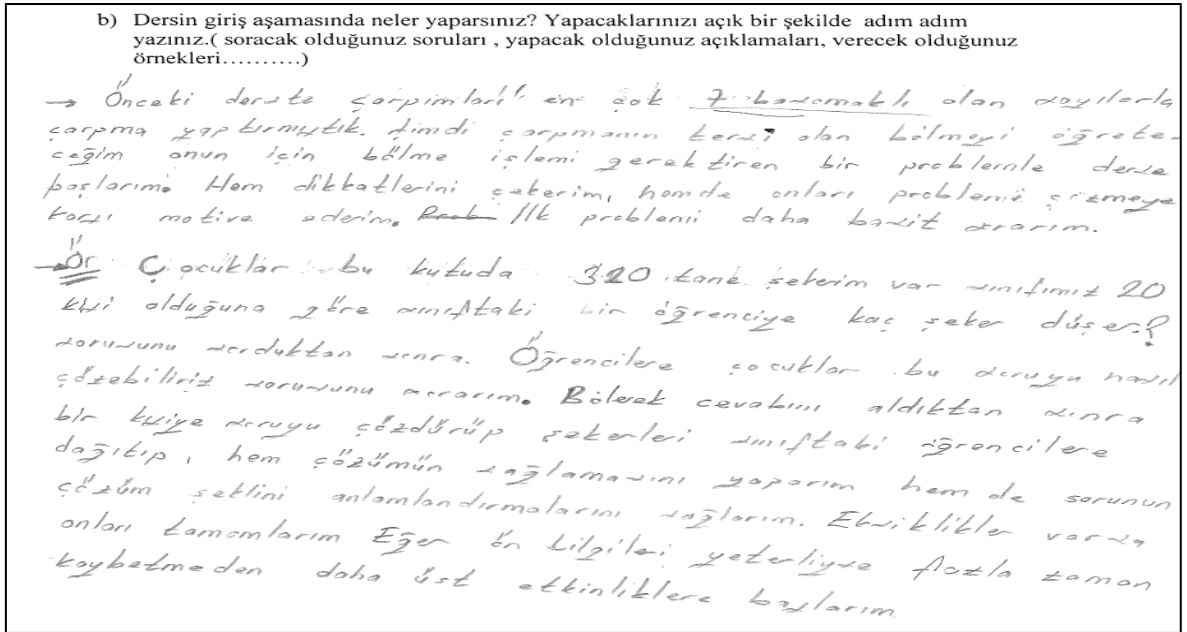 b) Dersin giriş aşamasında neler yaparsınız? Yapacaklarınızı açık bir şekilde adım adım
yazınız.( soracak olduğunuz soruları , yapacak olduğunuz açıklamaları, verecek olduğunuz
örnekleri……….)
→ Önceki derste çarpımları en çok 7 basamaklı olan sayılarla
çarpma yaptırmıştık. Şimdi çarpmanın tersi olan bölmeyi öğrete-
ceğim onun için bölme işlemi gerektiren bir problemle derse
başlarım. Hem dikkatlerini çekerim, hemde onları problemi çözmeye
karşı motive ederim. İlk problemi daha basit sorarım.
→ Ör Çocuklar bu kutuda 320 tane şekerim var sınıfımız 20
kişi olduğuna göre sınıftaki bir öğrenciye kaç şeker düşer?
sorusunu sorduktan sonra. Öğrencilere çocuklar bu soruyu nasıl
çözebiliriz sorusunu sorarım. Bölerek cevabını aldıktan sonra
bir kişiye soruyu çözdürüp şekerleri sınıftaki öğrencilere
dağıtıp, hem çözümün sağlamasını yaparım hem de sorunun
çözüm şeklini anlamlandırmalarını sağlarım. Eksiklikler varsa
onları tamamlarım Eğer ön bilgileri yeterliyse fazla zaman
kaybetmeden daha üst etkinliklere başlarım